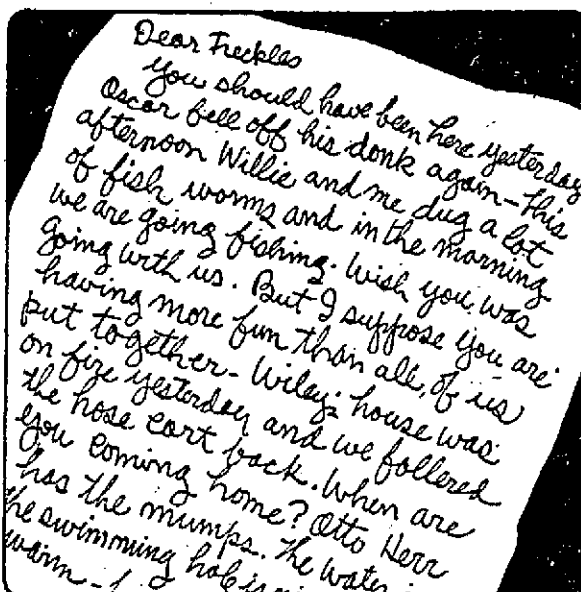 Dear Freckles
you should have been here yesterday
Oscar fell off his donk again - this
afternoon Willie and me dug a lot
of fish worms and in the morning
we are going fishing. Wish you was
going with us. But I suppose you are
having more fun than all of us
put together - Wiley's house was
on fire yesterday and we follered
the hose cart back. When are
you coming home? Otto Herr
has the mumps. The water
the swimming hole is
warm -